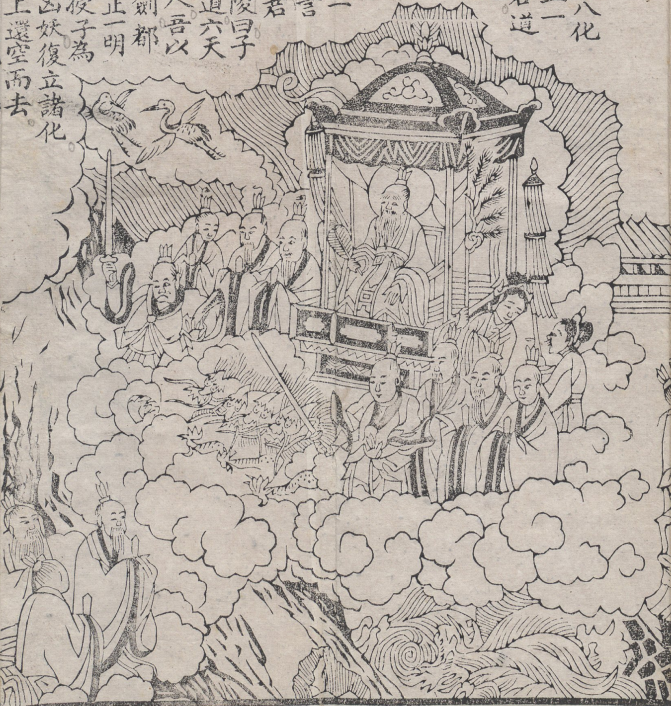 八化
一
君道
一
言
君
陵曰子
道六天
人吾以
劍都
正一明
授子為
凶妖復立諸化
上還空而去